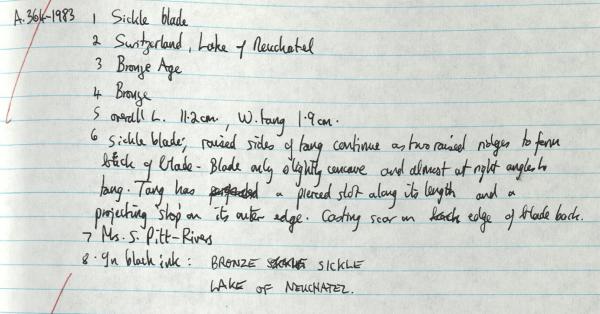 A.364-1983 1 Sickle blade
2 Switzerland, Lake of Neuchatel
3 Bronze Age
4 Bronze
5 overall L. 11.2cm, W. tang 1.9cm.
6 Sickle blade; raised sides of tang continue as two raised ridges to form
back of blade - Blade only slightly concave and almost at right angles to
tang. Tang has a pierced slot along its length and a
projecting 'stop' on its outer edge. Casting scar on edge of blade back.
7 Ms. S. Pitt-Rivers
8. In black ink: BRONZE SICKLE
LAKE OF NEUCHATEL.